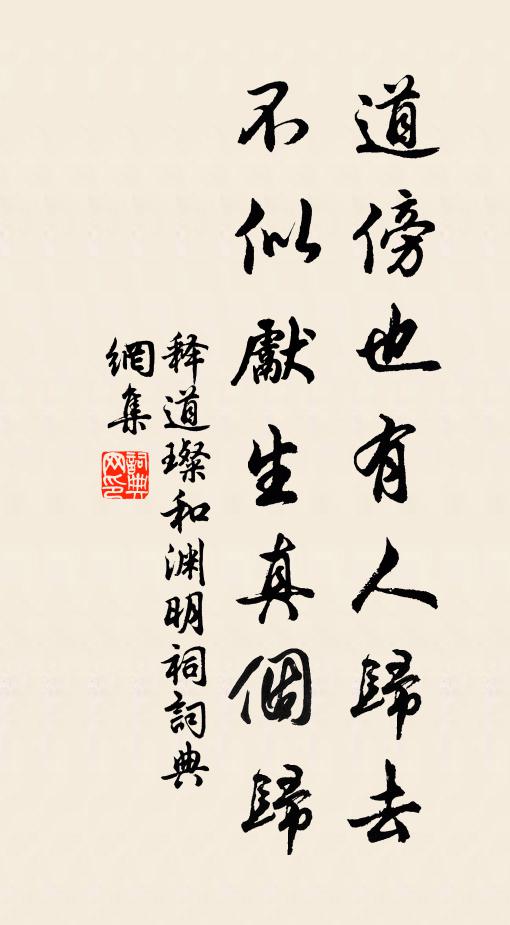 道傍也有人歸去
不似獻生真個歸
释道璨和渊明祠詞典
網集
詞典網印